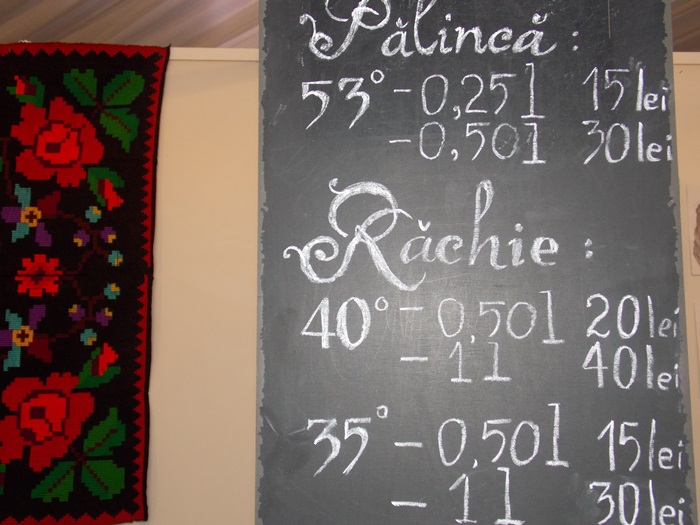 Pălincă :
53° - 0,25 l 15 lei
- 0,50 l 30 lei
Răchie :
40° - 0,50 l 20 lei
- 1 l 40 lei
35° - 0,50 l 15 lei
- 1 l 30 lei